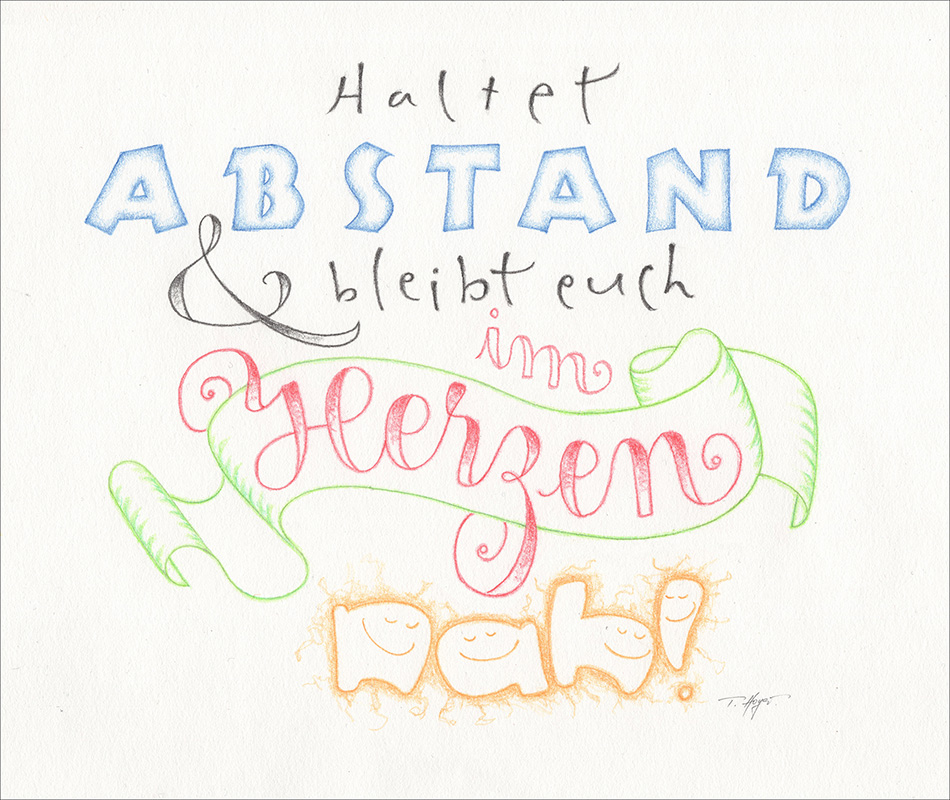 Haltet
ABSTAND
& bleibt euch
im
Herzen
nah!